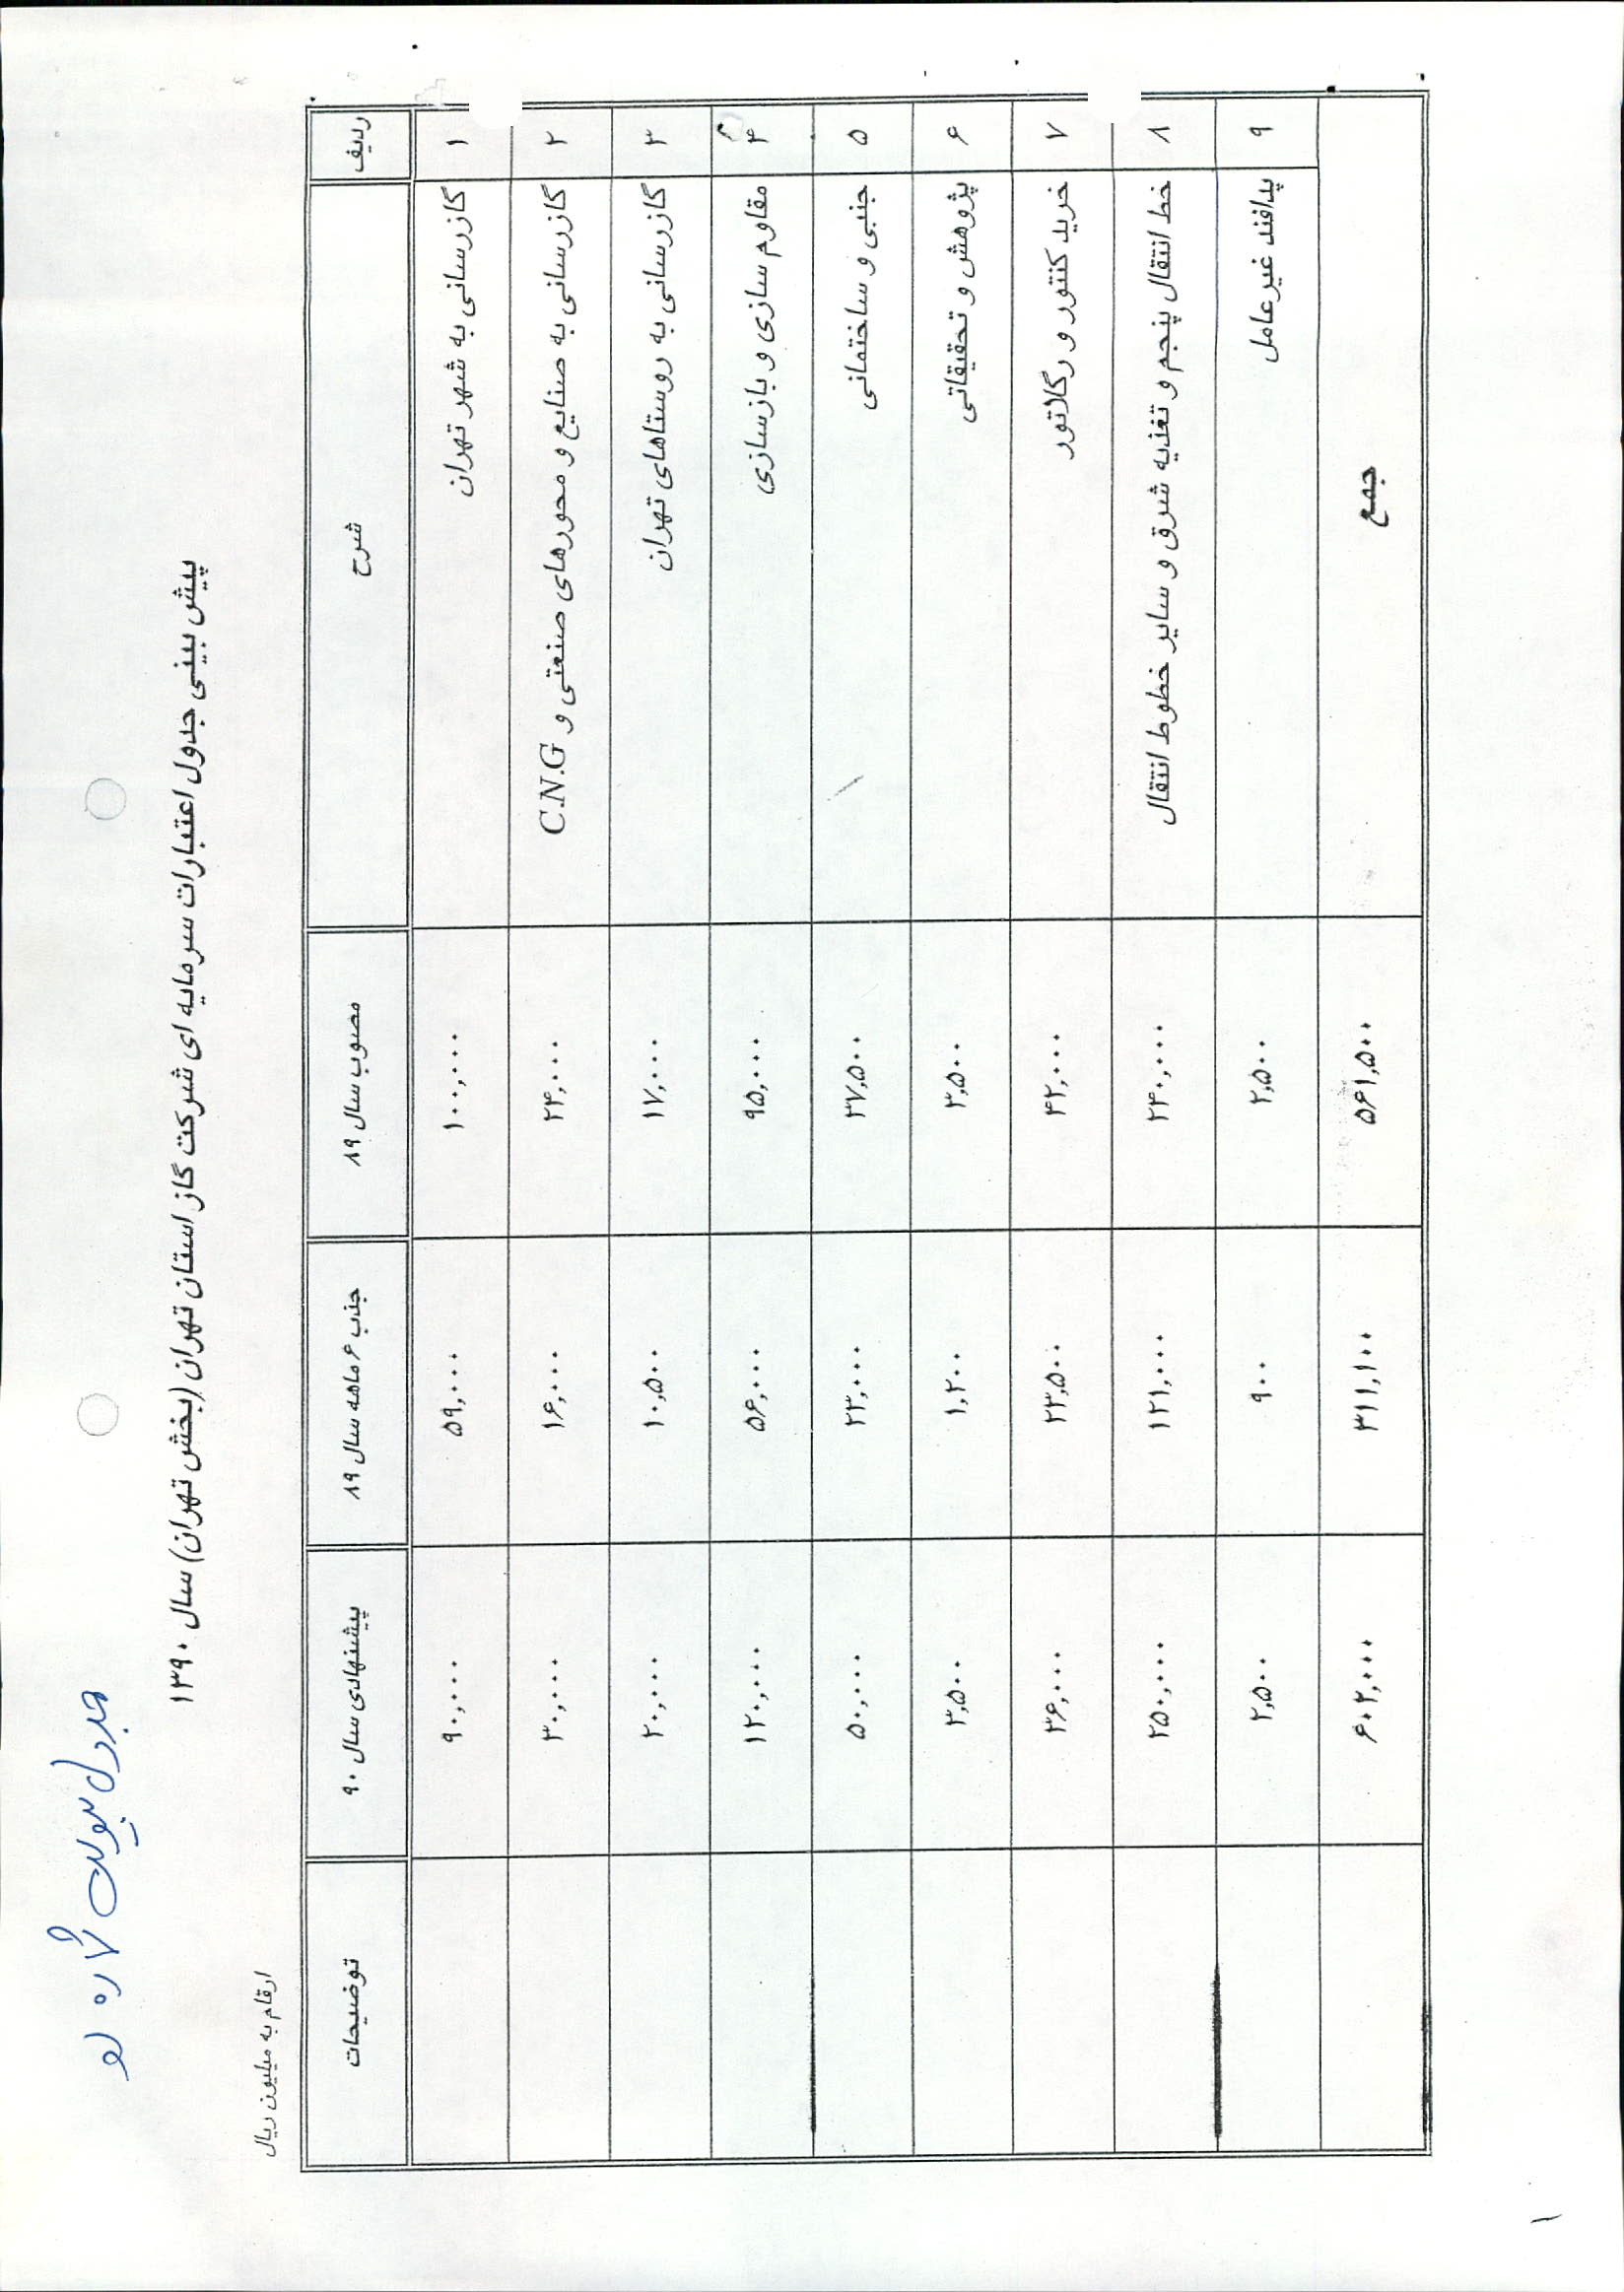 جدول پیوست شماره
پیش بینی جدول اعتبارات سرمایه ای شرکت گاز استان تهران (بخش تهران) سال ۱۳۹۰
ارقام به میلیون ریال
ردیف شرح مصوب سال ۸۹ جذب ۶ ماهه سال ۸۹ پیشنهادی سال ۹۰ توضیحات
۱ گازرسانی به شهر تهران ۱۰۰,۰۰۰ ۵۹,۰۰۰ ۹۰,۰۰۰
۲ گازرسانی به صنایع و محورهای صنعتی و C.N.G ۲۴,۰۰۰ ۱۶,۰۰۰ ۳۰,۰۰۰
۳ گازرسانی به روستاهای تهران ۱۷,۰۰۰ ۱۰,۵۰۰ ۲۰,۰۰۰
۴ مقاوم سازی و بازسازی ۹۵,۰۰۰ ۵۶,۰۰۰ ۱۲۰,۰۰۰
۵ جنبی و ساختمانی ۳۷,۵۰۰ ۲۳,۰۰۰ ۵۰,۰۰۰
۶ پژوهش و تحقیقاتی ۳,۵۰۰ ۱,۲۰۰ ۳,۵۰۰
۷ خرید کنتور و رگلاتور ۴۲,۰۰۰ ۲۳,۵۰۰ ۳۶,۰۰۰
۸ خط انتقال پنجم و تغذیه شرق و سایر خطوط انتقال ۲۴۰,۰۰۰ ۱۲۱,۰۰۰ ۲۵۰,۰۰۰
۹ پدافند غیرعامل ۲,۵۰۰ ۹۰۰ ۲,۵۰۰
جمع ۵۶۱,۵۰۰ ۳۱۱,۱۰۰ ۶۰۲,۰۰۰